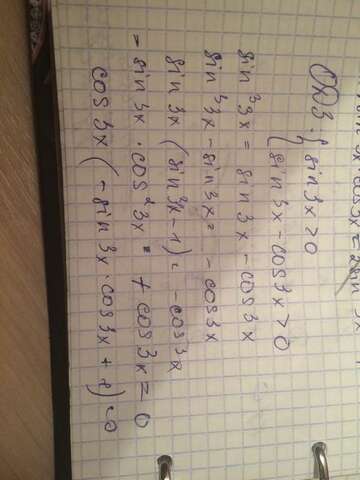 ОДЗ: { sin3x>0
{ sin3x-cos3x>0
sin³3x = sin3x - cos3x
sin³3x - sin3x = - cos3x
sin3x (sin²3x-1) = -cos3x
- sin3x · cos²3x = + cos3x = 0
cos3x (- sin3x · cos3x + 1) = 0